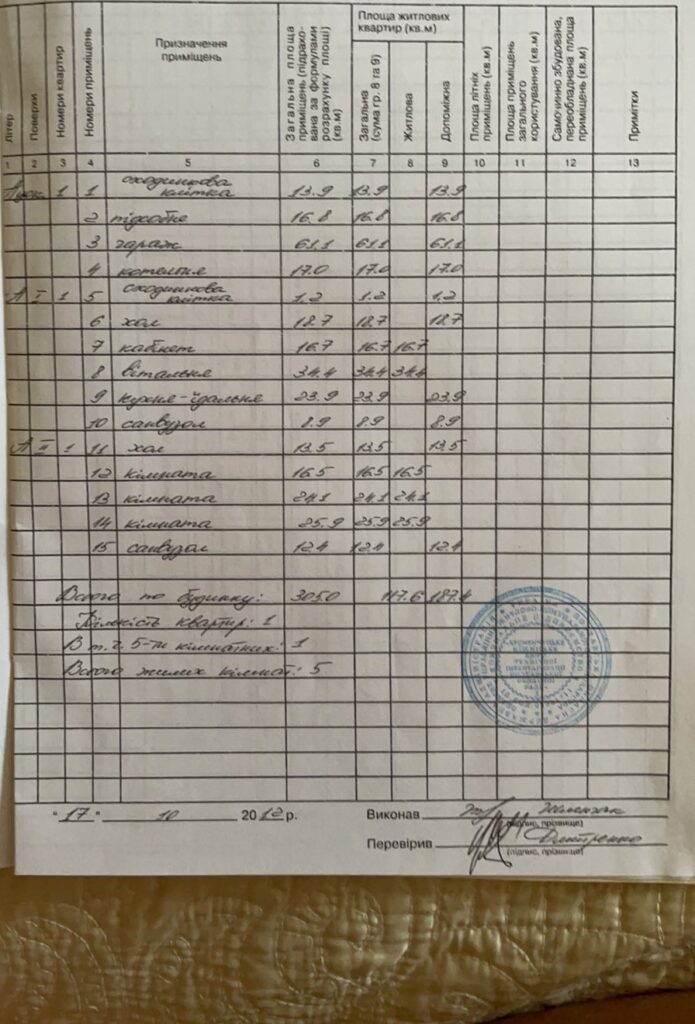 Літер | Поверхи | Номери квартир | Номери приміщень | Призначення приміщень | Загальна площа приміщень (підрахована за формулами розрахунку площі) (кв.м) | Площа житлових квартир (кв.м) | Загальна (сума гр. 8 та 9) | Житлова | Допоміжна | Площа літніх приміщень (кв.м) | Площа приміщень загального користування (кв.м) | Самочинно збудована, переобладнана площа приміщень (кв.м) | Примітки
1 2 3 4 5 6 7 8 9 10 11 12 13
1 1 сходинкова клітка 13.9 13.9 13.9
2 підсобне 16.8 16.8 16.8
3 гараж 61.1 61.1 61.1
4 котельня 17.0 17.0 17.0
А I 1 5 сходинкова клітка 1.2 1.2 1.2
6 хол 18.7 18.7 18.7
7 кабінет 16.7 16.7 16.7
8 вітальня 34.4 34.4 34.4
9 кухня-їдальня 23.9 23.9 23.9
10 санвузол 8.9 8.9 8.9
А II 1 11 хол 13.5 13.5 13.5
12 кімната 16.5 16.5 16.5
13 кімната 24.1 24.1 24.1
14 кімната 25.9 25.9 25.9
15 санвузол 12.4 12.4 12.4
Всього по будинку: 305.0 117.6 187.4
Кількість квартир: 1
В т.ч. 5-ти кімнатних: 1
Всього жилих кімнат: 5
"17" 10 2012 р. Виконав
(підпис, прізвище)
Перевірив Дмитренко
(підпис, прізвище)